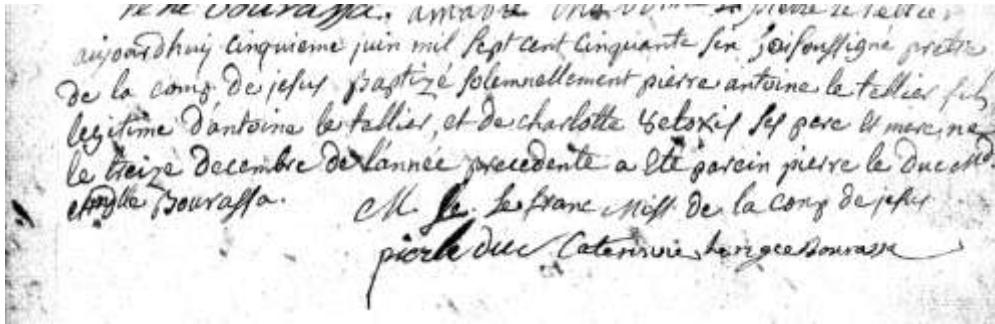 rene Bourassa. amable
aujourdhuy cinquieme juin mil sept cent cinquante six j'ai soussigné pretre
de la comp de jesus baptizé solemnellement pierre antoine le tellier fils
legitime d'antoine le tellier, et de charlotte 8eto8is ses pere et mere, né
le treize decembre de l'année precedente a eté parein pierre le duc
et mlle Bourassa.
M. le franc Miss. de la comp de jesus
pier le duc Caterinne Bourassa